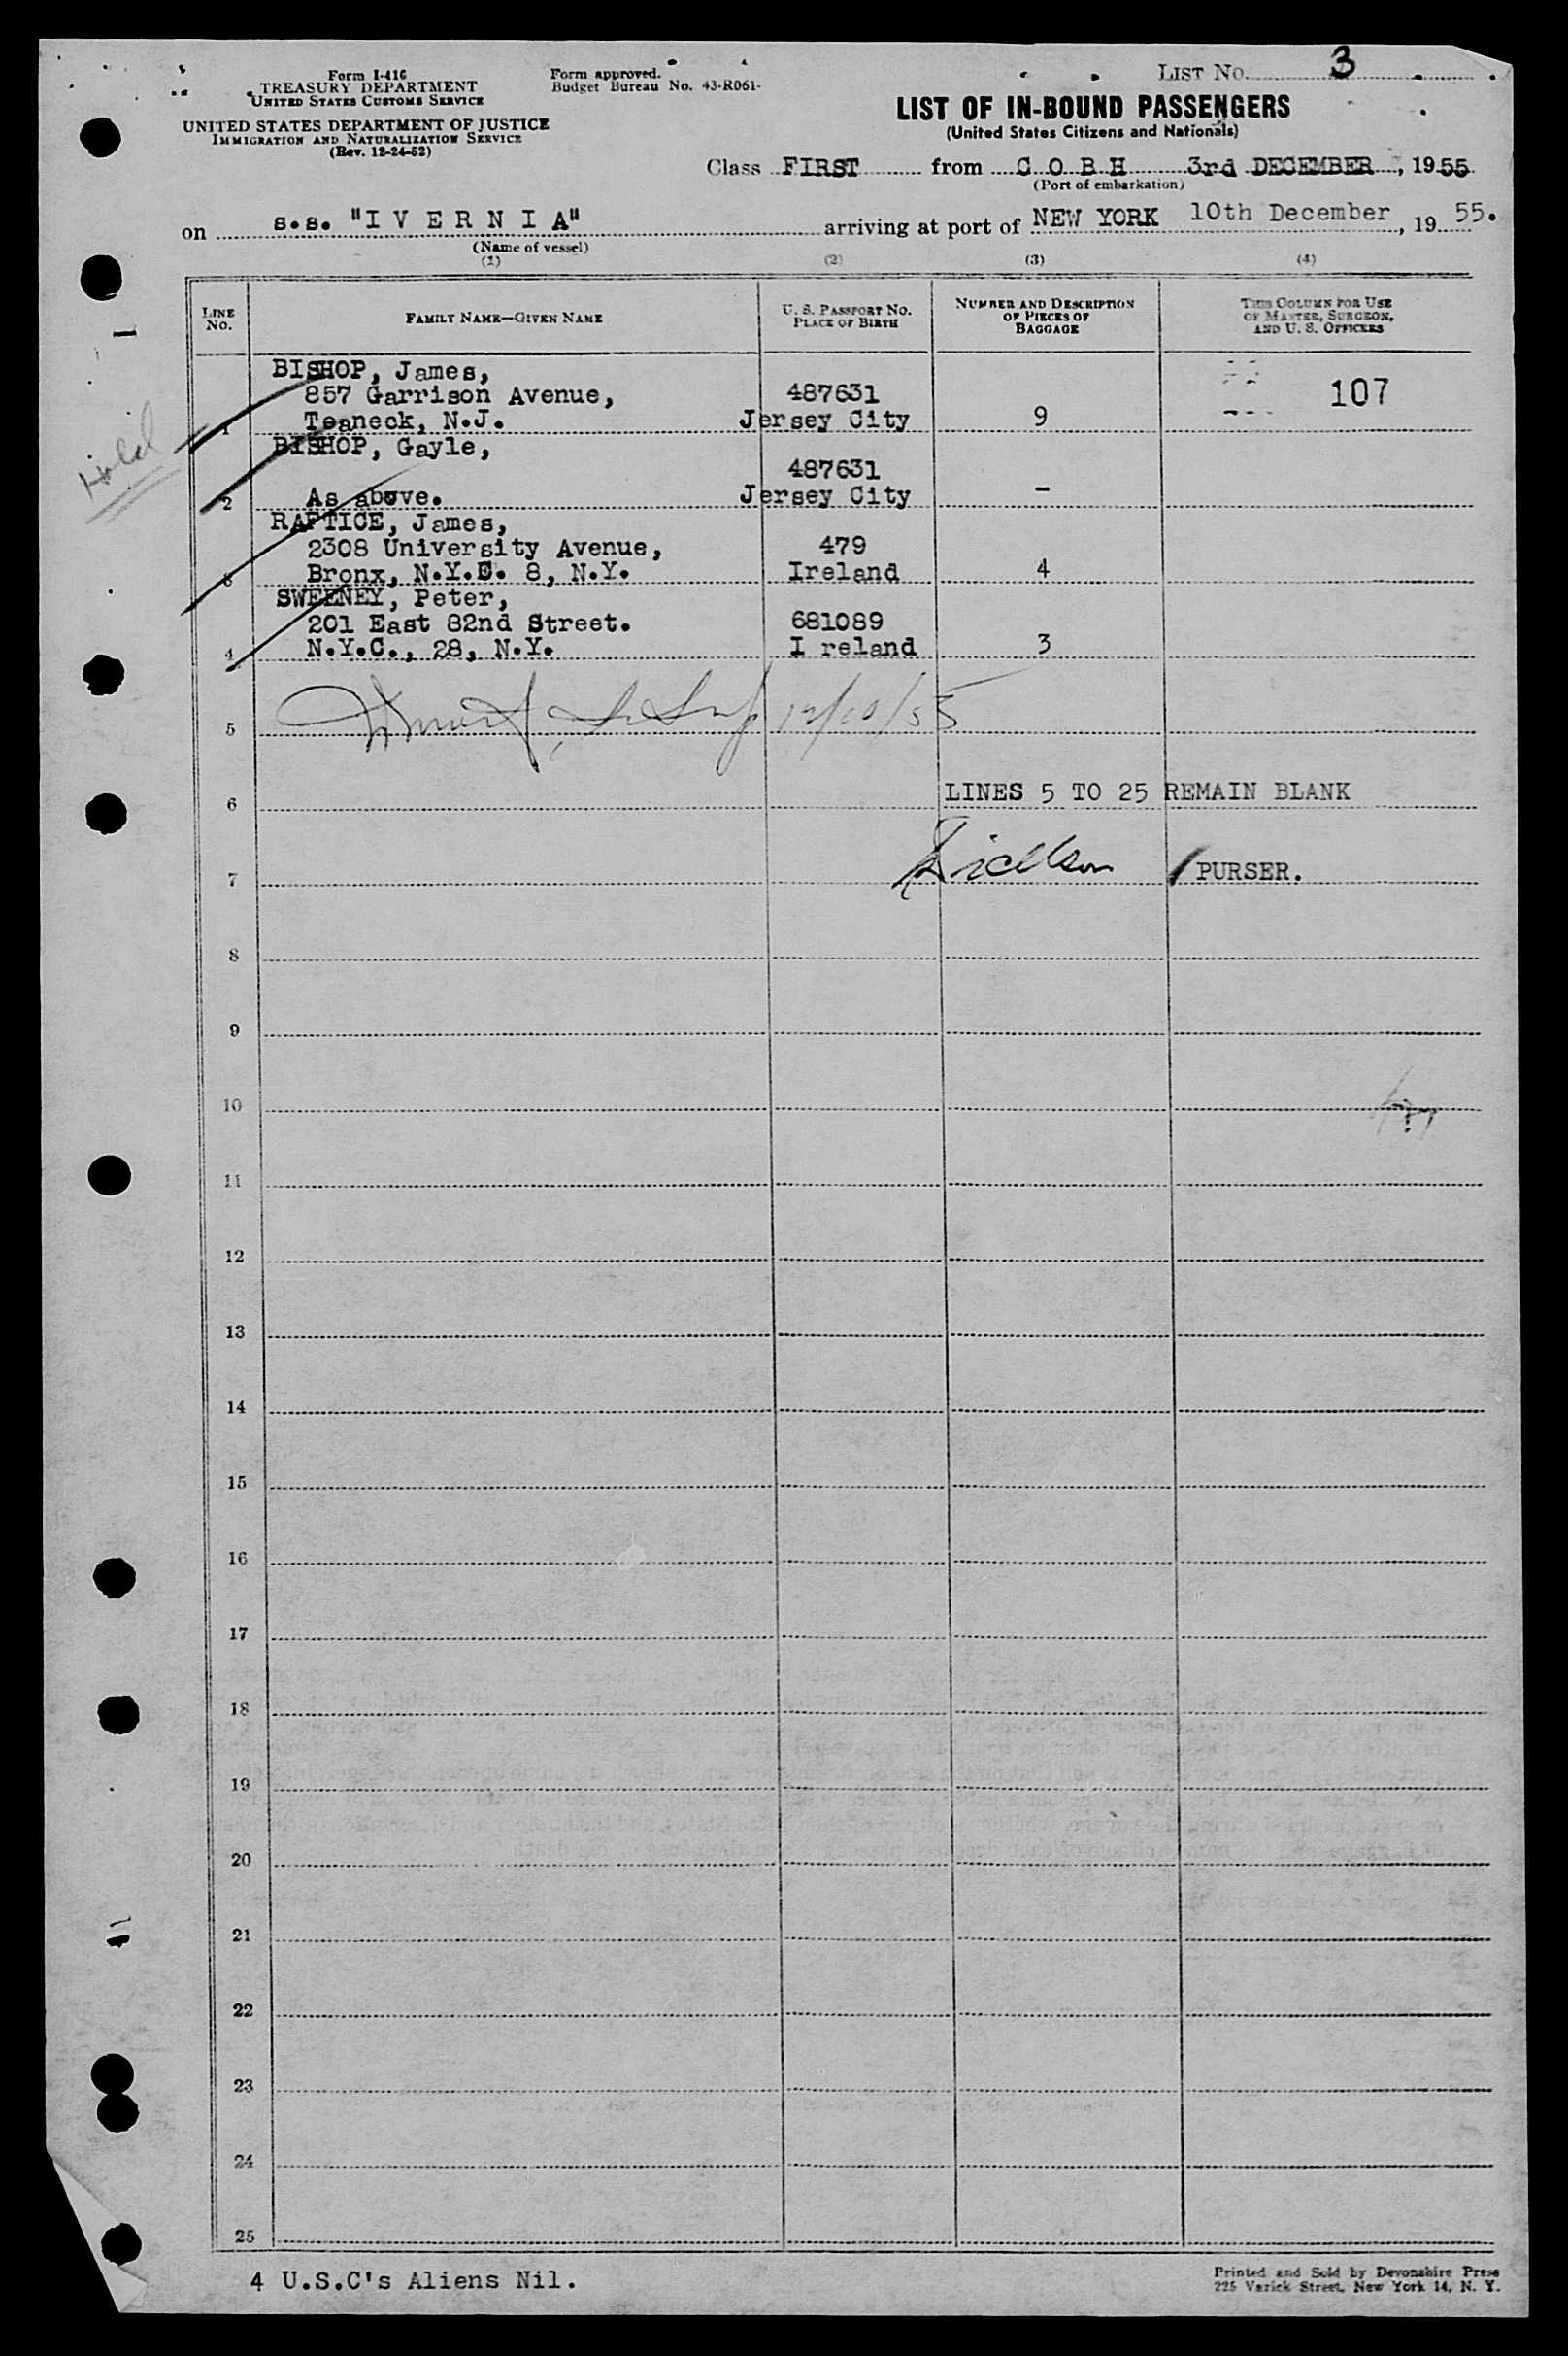 Form I-416
TREASURY DEPARTMENT
UNITED STATES CUSTOMS SERVICE
UNITED STATES DEPARTMENT OF JUSTICE
IMMIGRATION AND NATURALIZATION SERVICE
(Rev. 12-24-52)
Form approved.
Budget Bureau No. 43-R061-
LIST NO. 3
LIST OF IN-BOUND PASSENGERS
(United States Citizens and Nationals)
Class FIRST from C O B H 3rd DECEMBER, 1955
(Port of embarkation)
on s.s. "I V E R N I A" arriving at port of NEW YORK 10th December, 19 55.
(Name of vessel)
(1) (2) (3) (4)
LINE NO.
FAMILY NAME—GIVEN NAME
U. S. PASSPORT NO.
PLACE OF BIRTH
NUMBER AND DESCRIPTION
OF PIECES OF
BAGGAGE
THIS COLUMN FOR USE
OF MASTER, SURGEON,
AND U. S. OFFICERS
BISHOP, James,
857 Garrison Avenue, 487631 107
1 Teaneck, N.J. Jersey City 9
Held
BISHOP, Gayle,
487631
2 As above. Jersey City -
RAFTICE, James,
2308 University Avenue, 479
3 Bronx, N.Y.C. 8, N.Y. Ireland 4
SWEENEY, Peter,
201 East 82nd Street. 681089
4 N.Y.C., 28, N.Y. I reland 3
5 12/10/55
LINES 5 TO 25 REMAIN BLANK
6
7 PURSER.
8
9
10
11
12
13
14
15
16
17
18
19
20
21
22
23
24
25
4 U.S.C's Aliens Nil.
Printed and Sold by Devonshire Press
225 Varick Street, New York 14, N. Y.